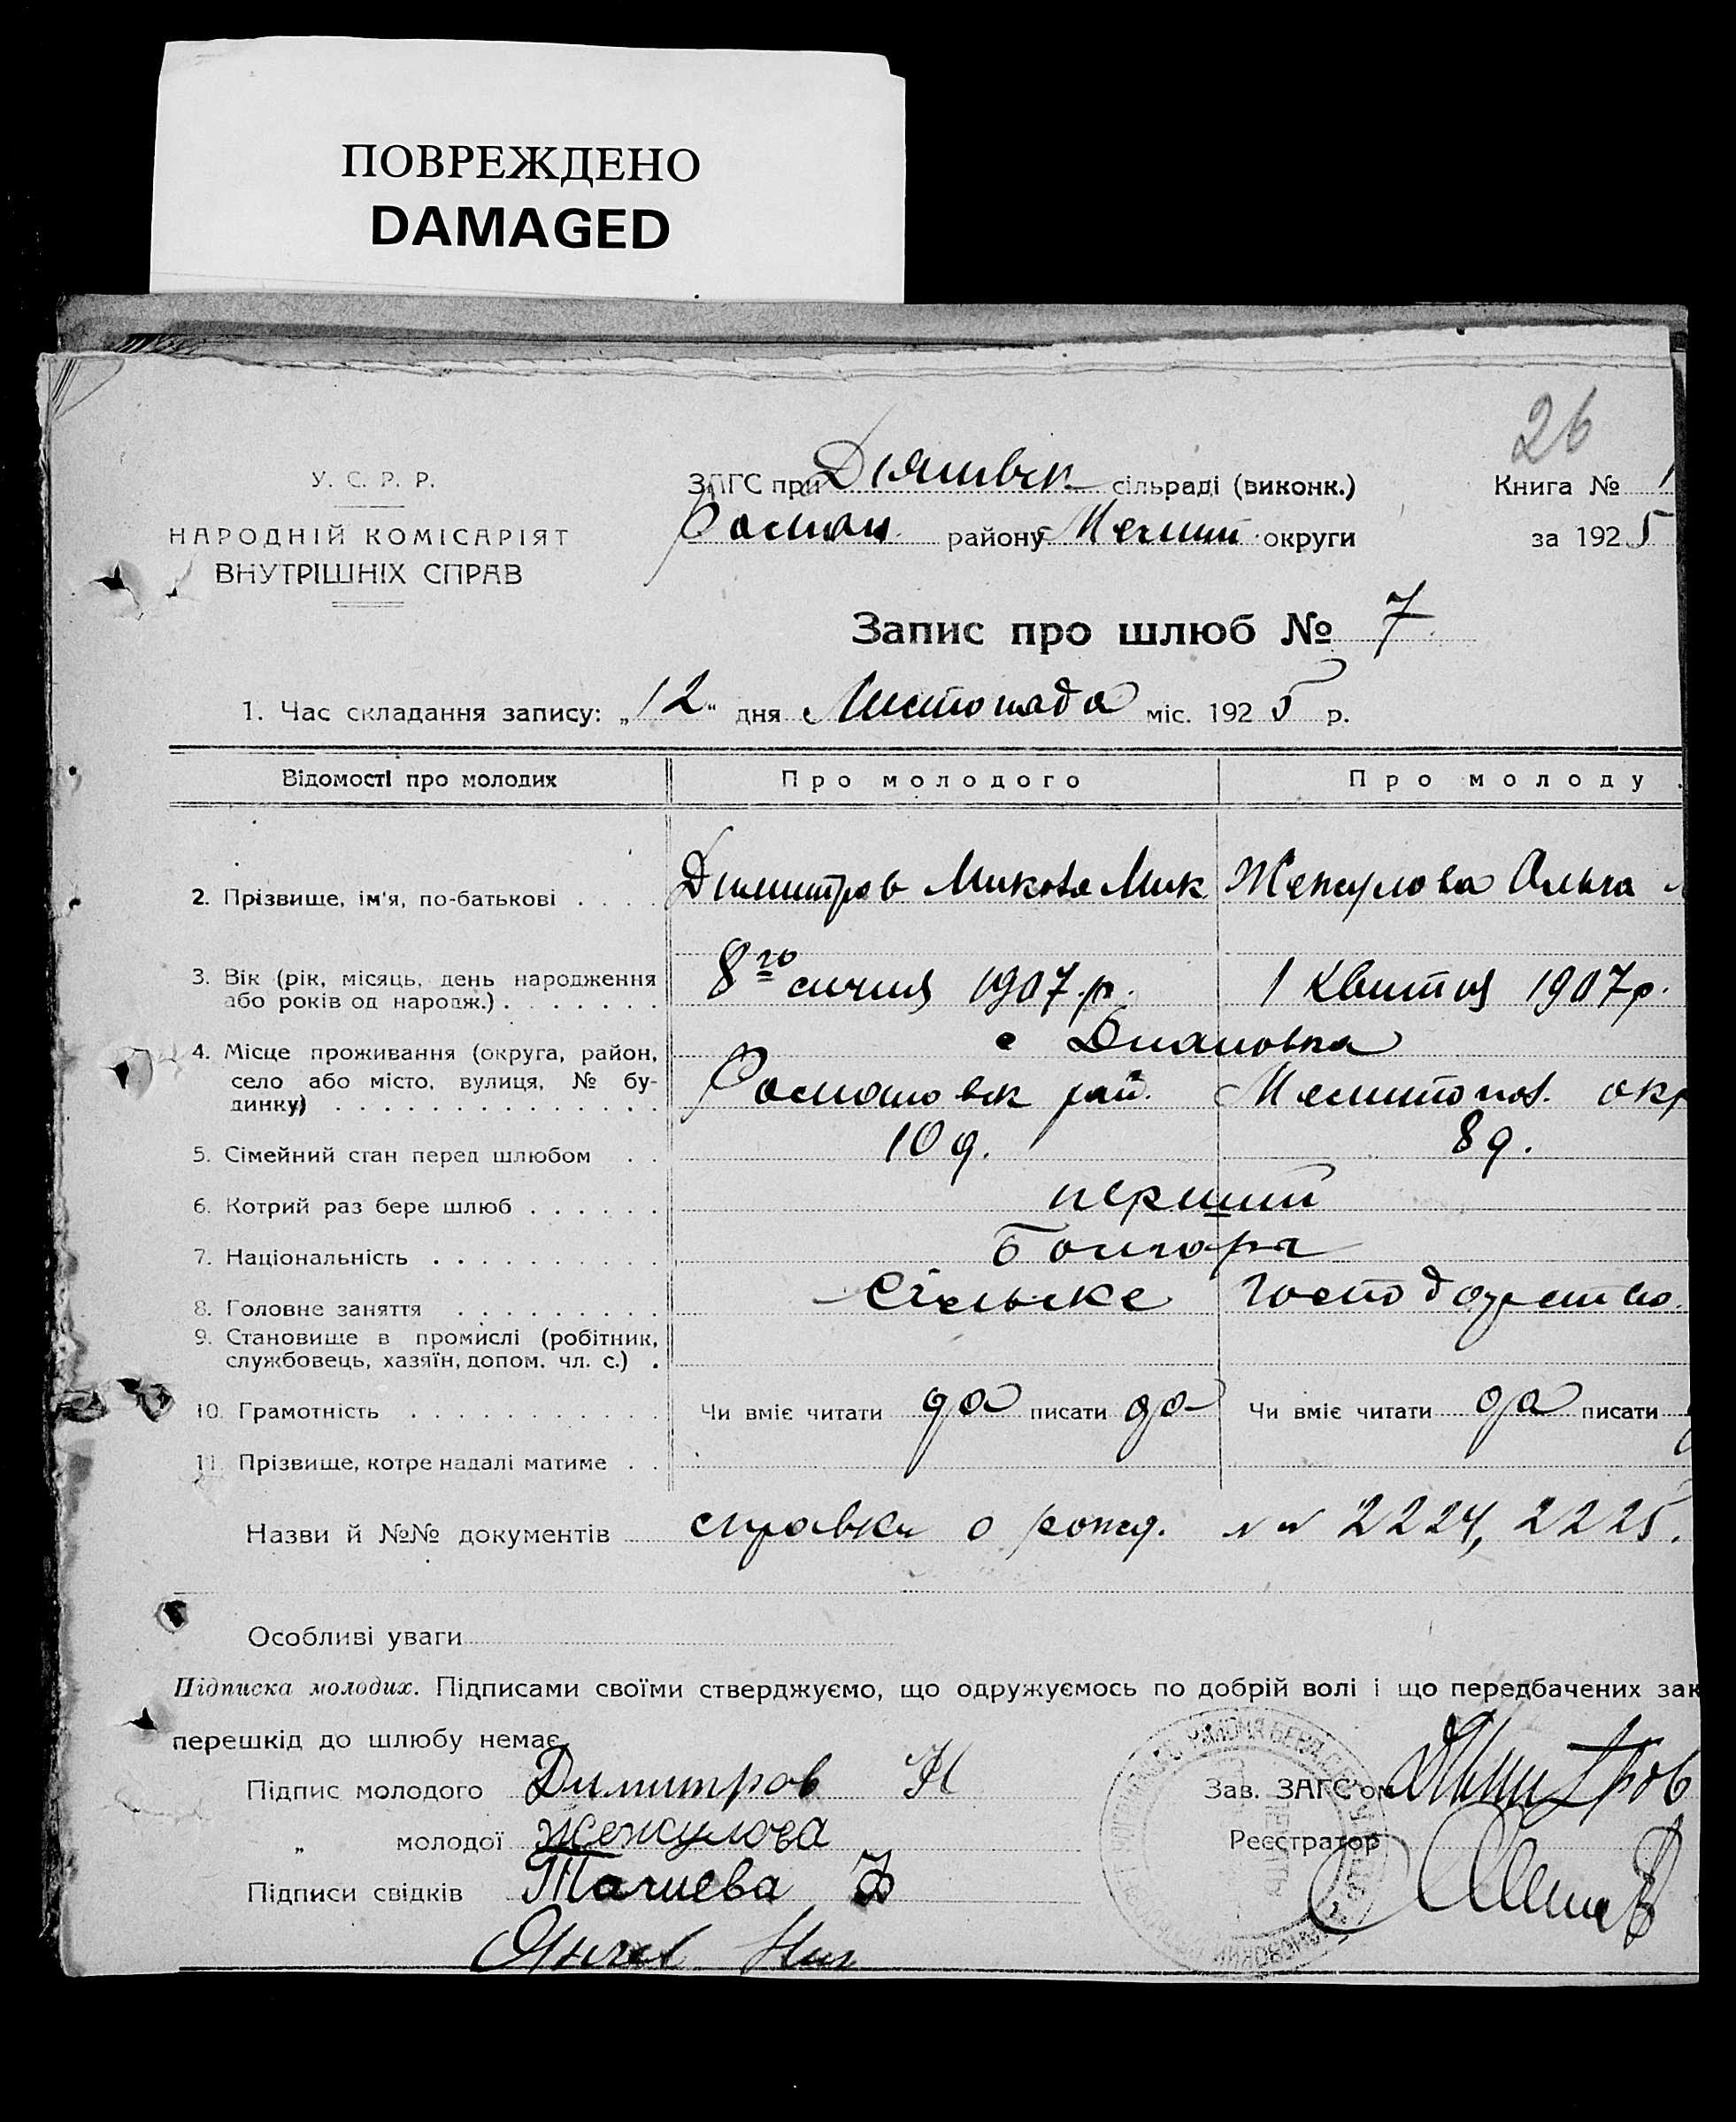 ПОВРЕЖДЕНО
DAMAGED
26
У. С. Р. Р.
НАРОДНІЙ КОМІСАРІЯТ
ВНУТРІШНІХ СПРАВ
ЗАГС при сільраді (виконк.)
Романі району Мелит округи
Книга № 1
за 1925
Запис про шлюб № 7
1. Час складання запису: „12“ дня Листопада міс. 1925 р.
Відомості про молодих Про молодого Про молоду
2. Прізвище, ім'я, по-батькові . . . . Димитров Микола Мик Жекулова Ольга
3. Вік (рік, місяць, день народження
або років од народж.) . . . . . . . 8го січня 1907 р. 1 Квитня 1907 р.
4. Місце проживання (округа, район, с Диановка
село або місто, вулиця, № бу-
динку) . . . . . . . . . . . . . . Романовск рай. Мелитопол. окр
5. Сімейний стан перед шлюбом . . 10 д. 8 д.
6. Котрий раз бере шлюб . . . . . . перший
7. Національність . . . . . . . . . . Болгоры
8. Головне заняття . . . . . . . . . Сільске господарство.
9. Становище в промислі (робітник,
службовець, хазяїн, допом. чл. с.) .
10. Грамотність . . . . . . . . . . . Чи вміє читати да писати да Чи вміє читати да писати
11. Прізвище, котре надалі матиме . .
Назви й №№ документів справки о рожд. NN 2224, 2225.
Особливі уваги
Підписка молодих. Підписами своїми стверджуємо, що одружуємось по добрій волі і що передбачених зак
перешкід до шлюбу немає
Підпис молодого Димитров Н Зав. ЗАГС'ом Димитров
„ молодої Жекулова Реєстратор
Підписи свідків Тачиева Ф